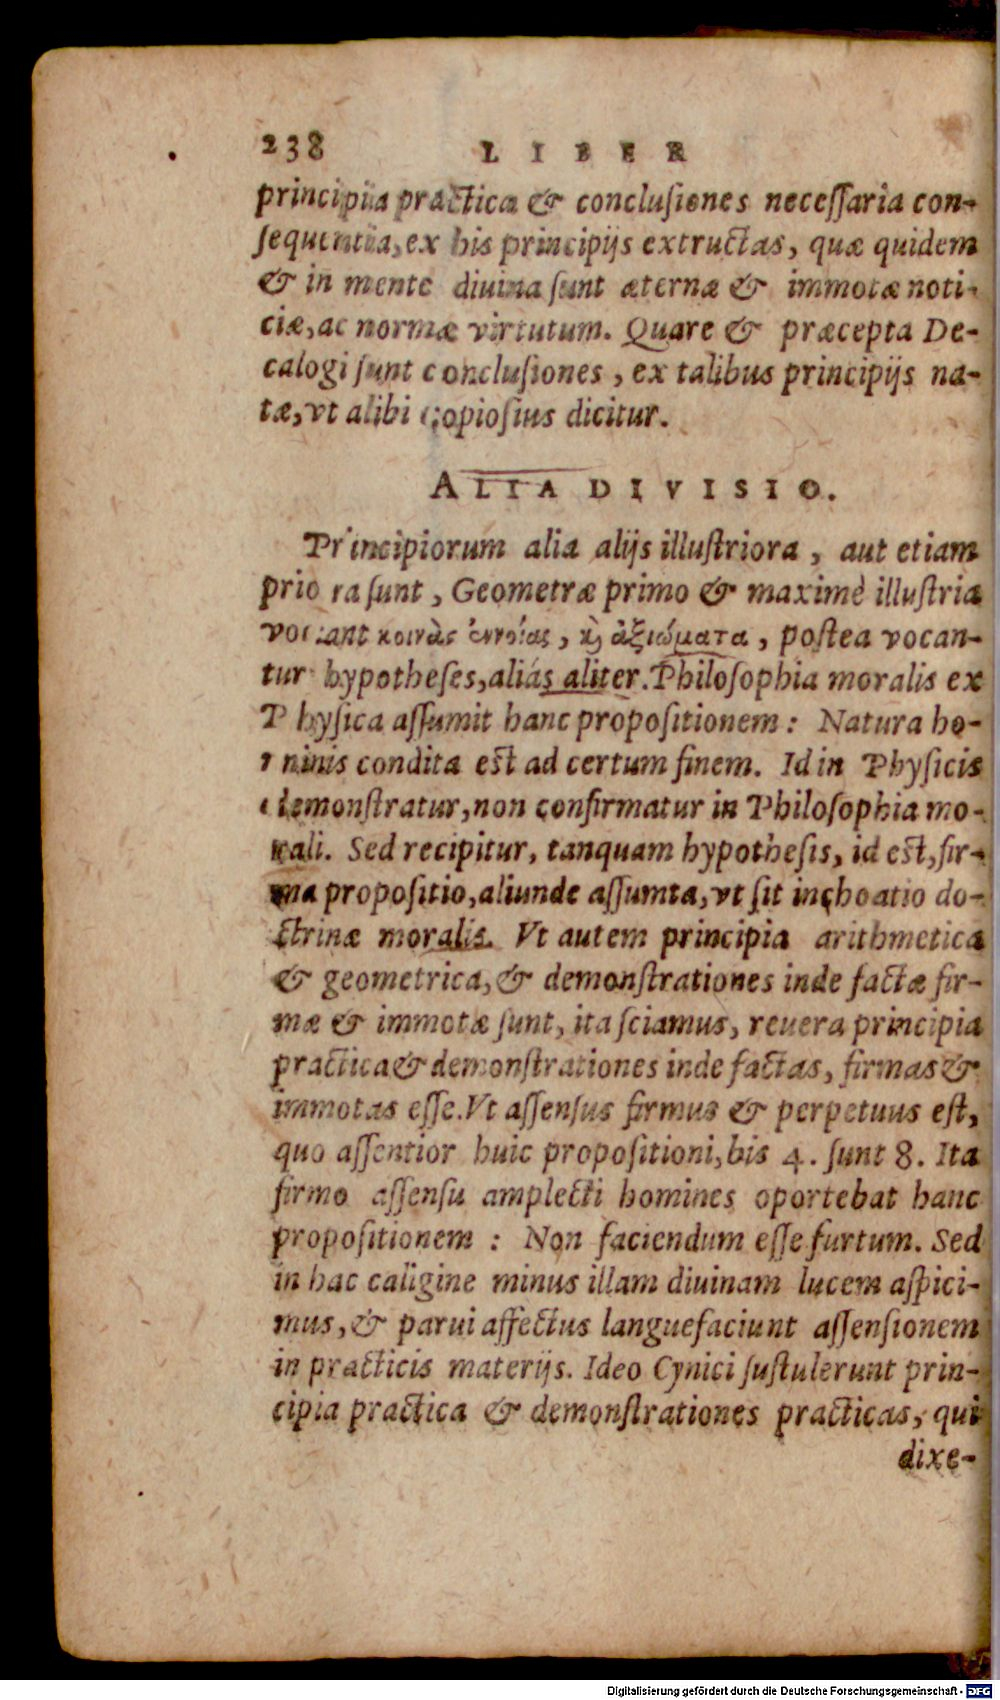 238 LIBER
principiia practica & conclusiones necessaria con-
sequentiia, ex his principijs extructas, quæ quidem
& in mente diuina sunt æternæ & immotæ noti-
ciæ, ac normæ virtutum. Quare & præcepta De-
calogi sunt conclusiones, ex talibus principijs na-
tæ, vt alibi copiosius dicitur.
ALIA DIVISIO.
Principiorum alia alijs illustriora, aut etiam
priora sunt, Geometræ primo & maximè illustria
vocant κοινὰς ἐννοίας, κὶ ἀξιώματα, postea vocan-
tur hypotheses, aliás aliter. Philosophia moralis ex
Physica assumit hanc propositionem: Natura ho-
minis condita est ad certum finem. Id in Physicis
demonstratur, non confirmatur in Philosophia mo-
rali. Sed recipitur, tanquam hypothesis, id est, fir-
ma propositio, aliunde assumta, vt sit inchoatio do-
ctrinæ moralis. Vt autem principia arithmetica
& geometrica, & demonstrationes inde factæ fir-
mæ & immotæ sunt, ita sciamus, reuera principia
practica & demonstrationes inde factas, firmas &
immotas esse. Vt assensus firmus & perpetuus est,
quo assentior huic propositioni, bis 4. sunt 8. Ita
firmo assensu amplecti homines oportebat hanc
propositionem: Non faciendum esse furtum. Sed
in hac caligine minus illam diuinam lucem aspici-
mus, & parui affectus languefaciunt assensionem
in practicis materijs. Ideo Cynici sustulerunt prin-
cipia practica & demonstrationes practicas, qui
dixe-
Digitalisierung gefördert durch die Deutsche Forschungsgemeinschaft - DFG